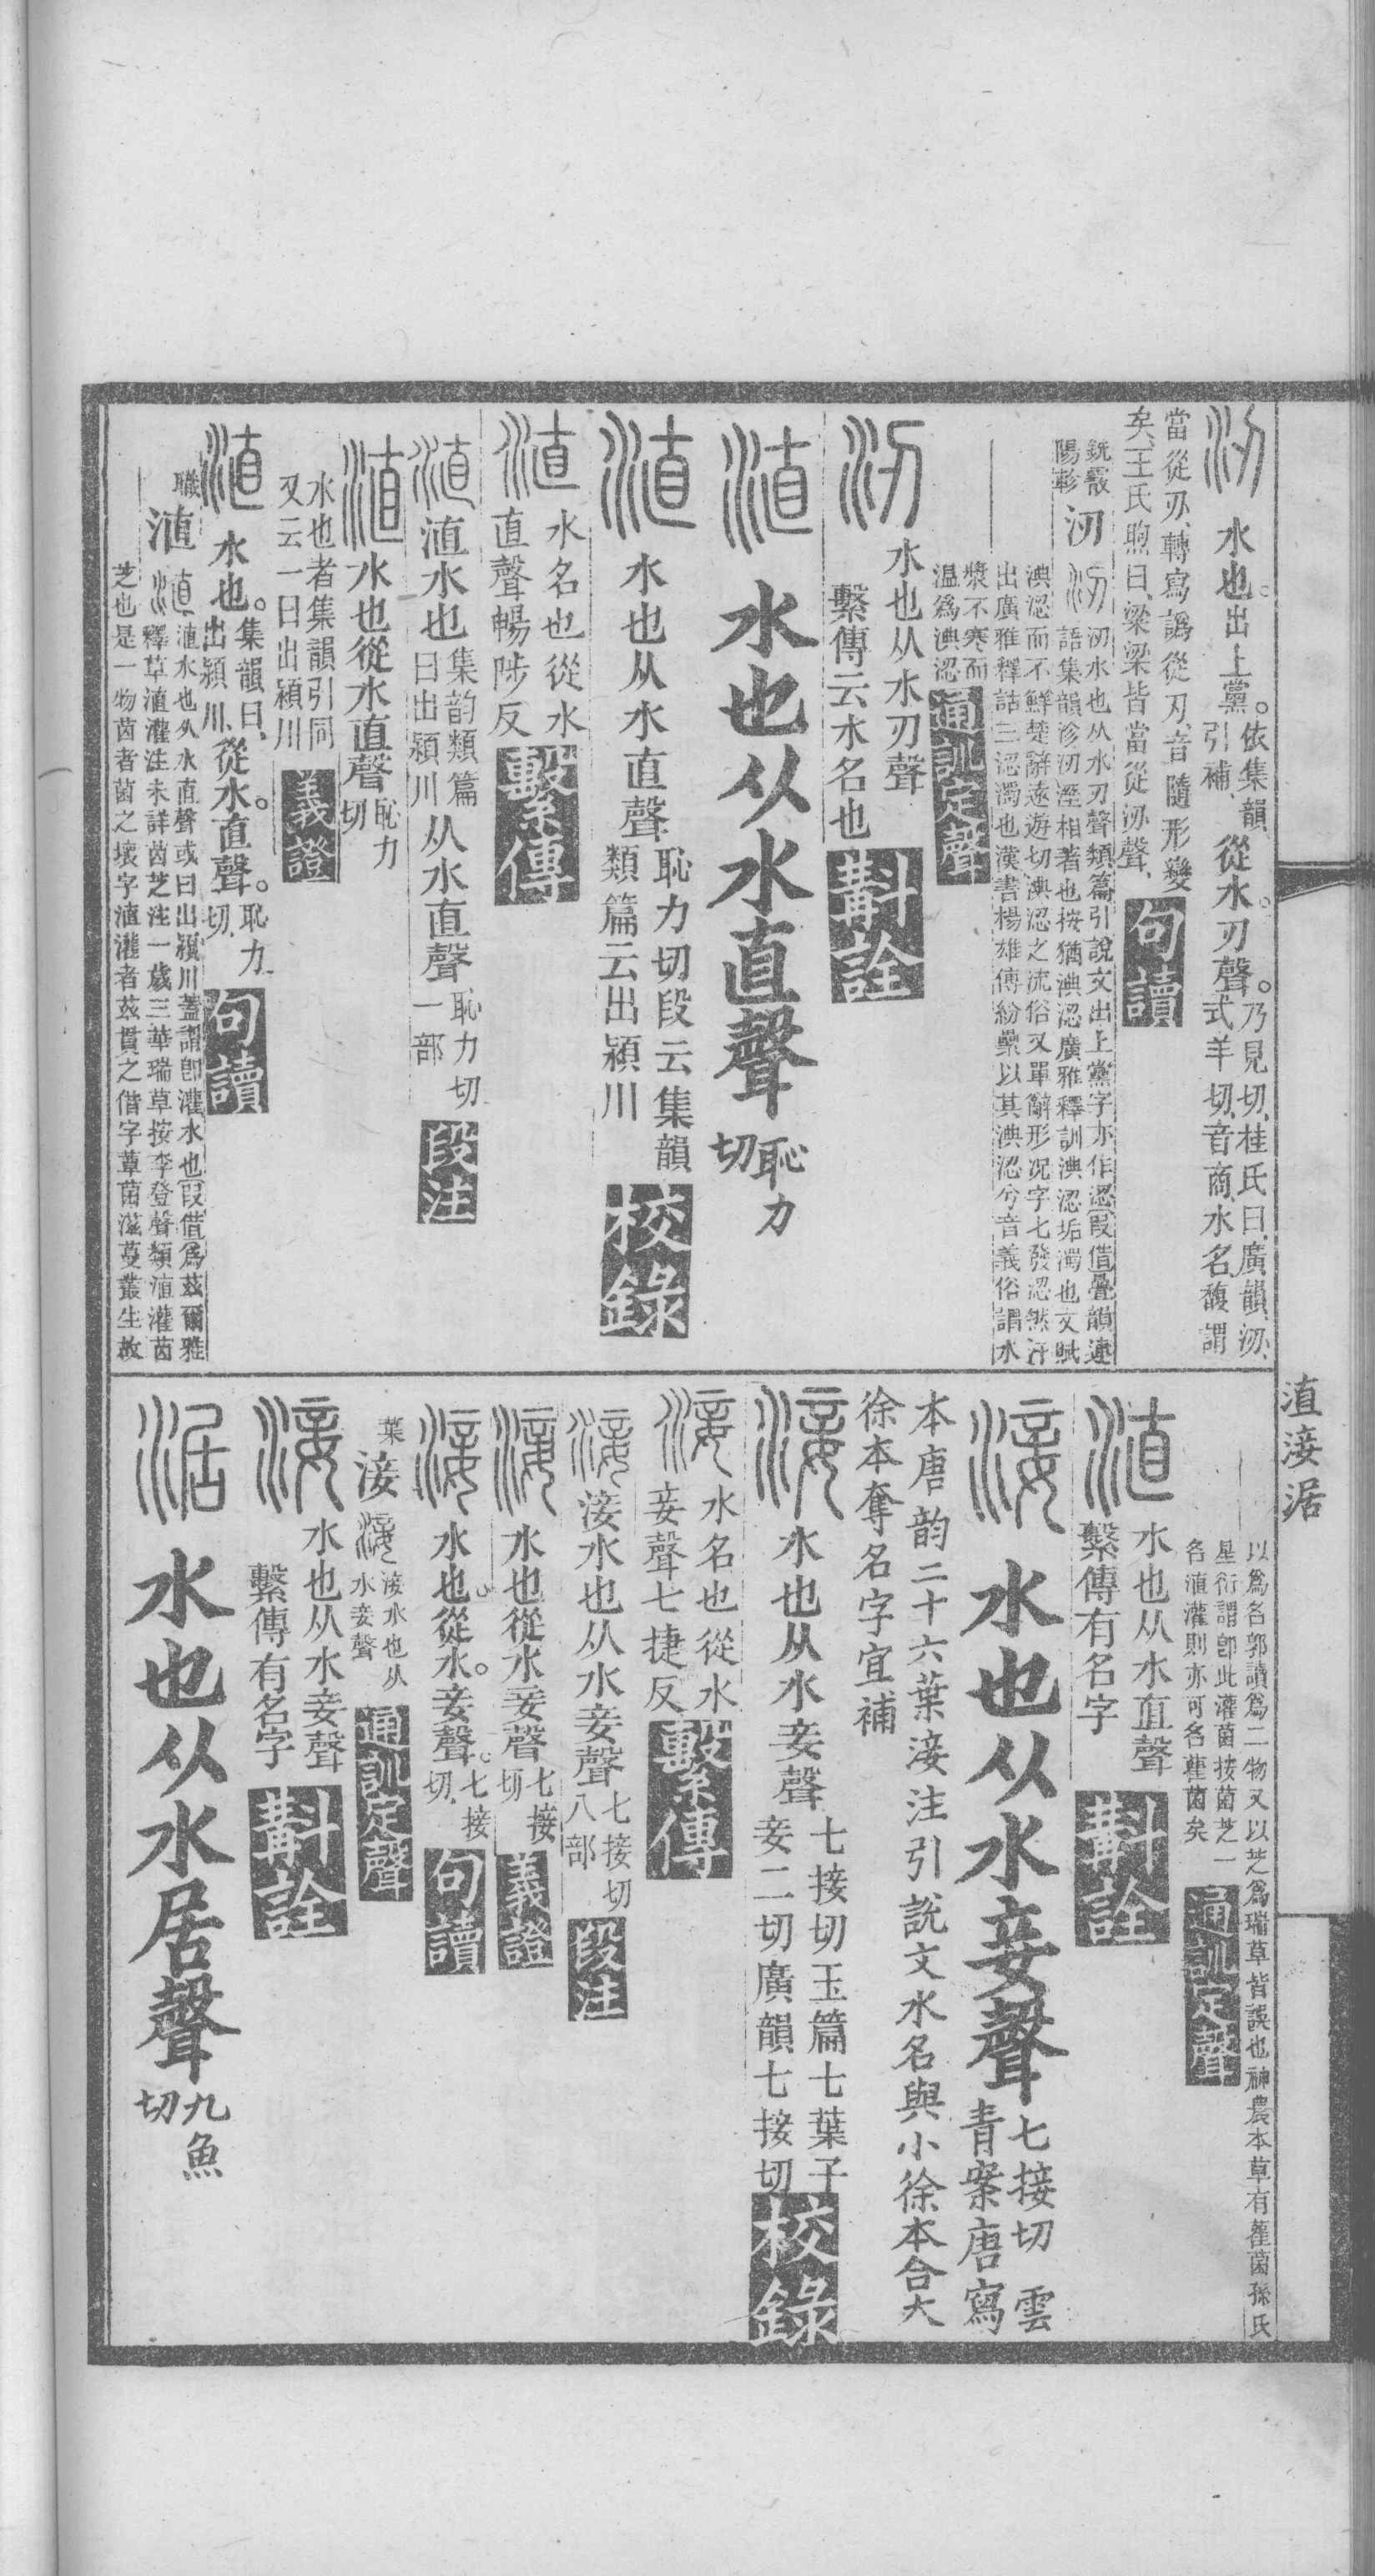 水也。出上黨。依集韻引補、從水。刃聲。乃見切、桂氏曰、廣韻、沏、式羊切、音商、水名、馥謂
當從刅、轉寫譌從刃、音隨形變
矣、王氏煦曰、梁粱皆當從沝聲、句讀
銑霰陽軫沏
沏水也从水刃聲類篇引說文出上黨字亦作涊叚借疊韻連
語集韻沴沏溼相著也按猶淟涊廣雅釋訓淟涊垢濁也文賦
淟涊而不鮮楚辭遠遊切淟涊之流俗又單辭形況字七發涊然汗
出廣雅釋詁三涊濁也漢書楊雄傳紛纍以其淟涊兮音義俗謂水
漿不寒而
温爲淟涊通訓定聲
水也从水刃聲
繫傳云水名也斠詮
水也从水直聲恥力切
水也从水直聲恥力切段云集韻類篇云出潁川校錄
水名也從水
直聲暢陟反繫傳
淔水也集韵類篇曰出潁川从水直聲恥力切一部段注
水也從水直聲恥力切
水也者集韻引同
又云一曰出潁川義證
水也。集韻曰、出潁川、從水。直聲。恥力切、句讀
職淔
淔水也从水直聲或曰出潁川蓋謂卽灌水也叚借爲茲爾雅
釋草淔灌注未詳茵芝注一歲三華瑞草按李登聲類淔灌茵
芝也是一物茵者菌之壞字淔灌者茲貫之借字蕈菌滋蔓叢生故
淔淁涺
以爲名郭讀爲二物又以芝爲瑞草皆誤也神農本草有雚菌孫氏
星衍謂卽此灌菌按菌芝一
名淔灌則亦可名雚菌矣通訓定聲
水也从水直聲
繫傳有名字斠詮
水也从水妾聲七接切 雲青案唐寫
本唐韵二十六葉淁注引説文水名與小徐本合大
徐本奪名字宜補
水也从水妾聲七接切玉篇七葉子妾二切廣韻七接切校錄
水名也從水
妾聲七捷反繫傳
淁水也从水妾聲七接切八部段注
水也從水妾聲七接切義證
水也。從水。妾聲。七接切、句讀
葉淁
淁水也从
水妾聲通訓定聲
水也从水妾聲
繫傳有名字斠詮
水也从水居聲九魚切